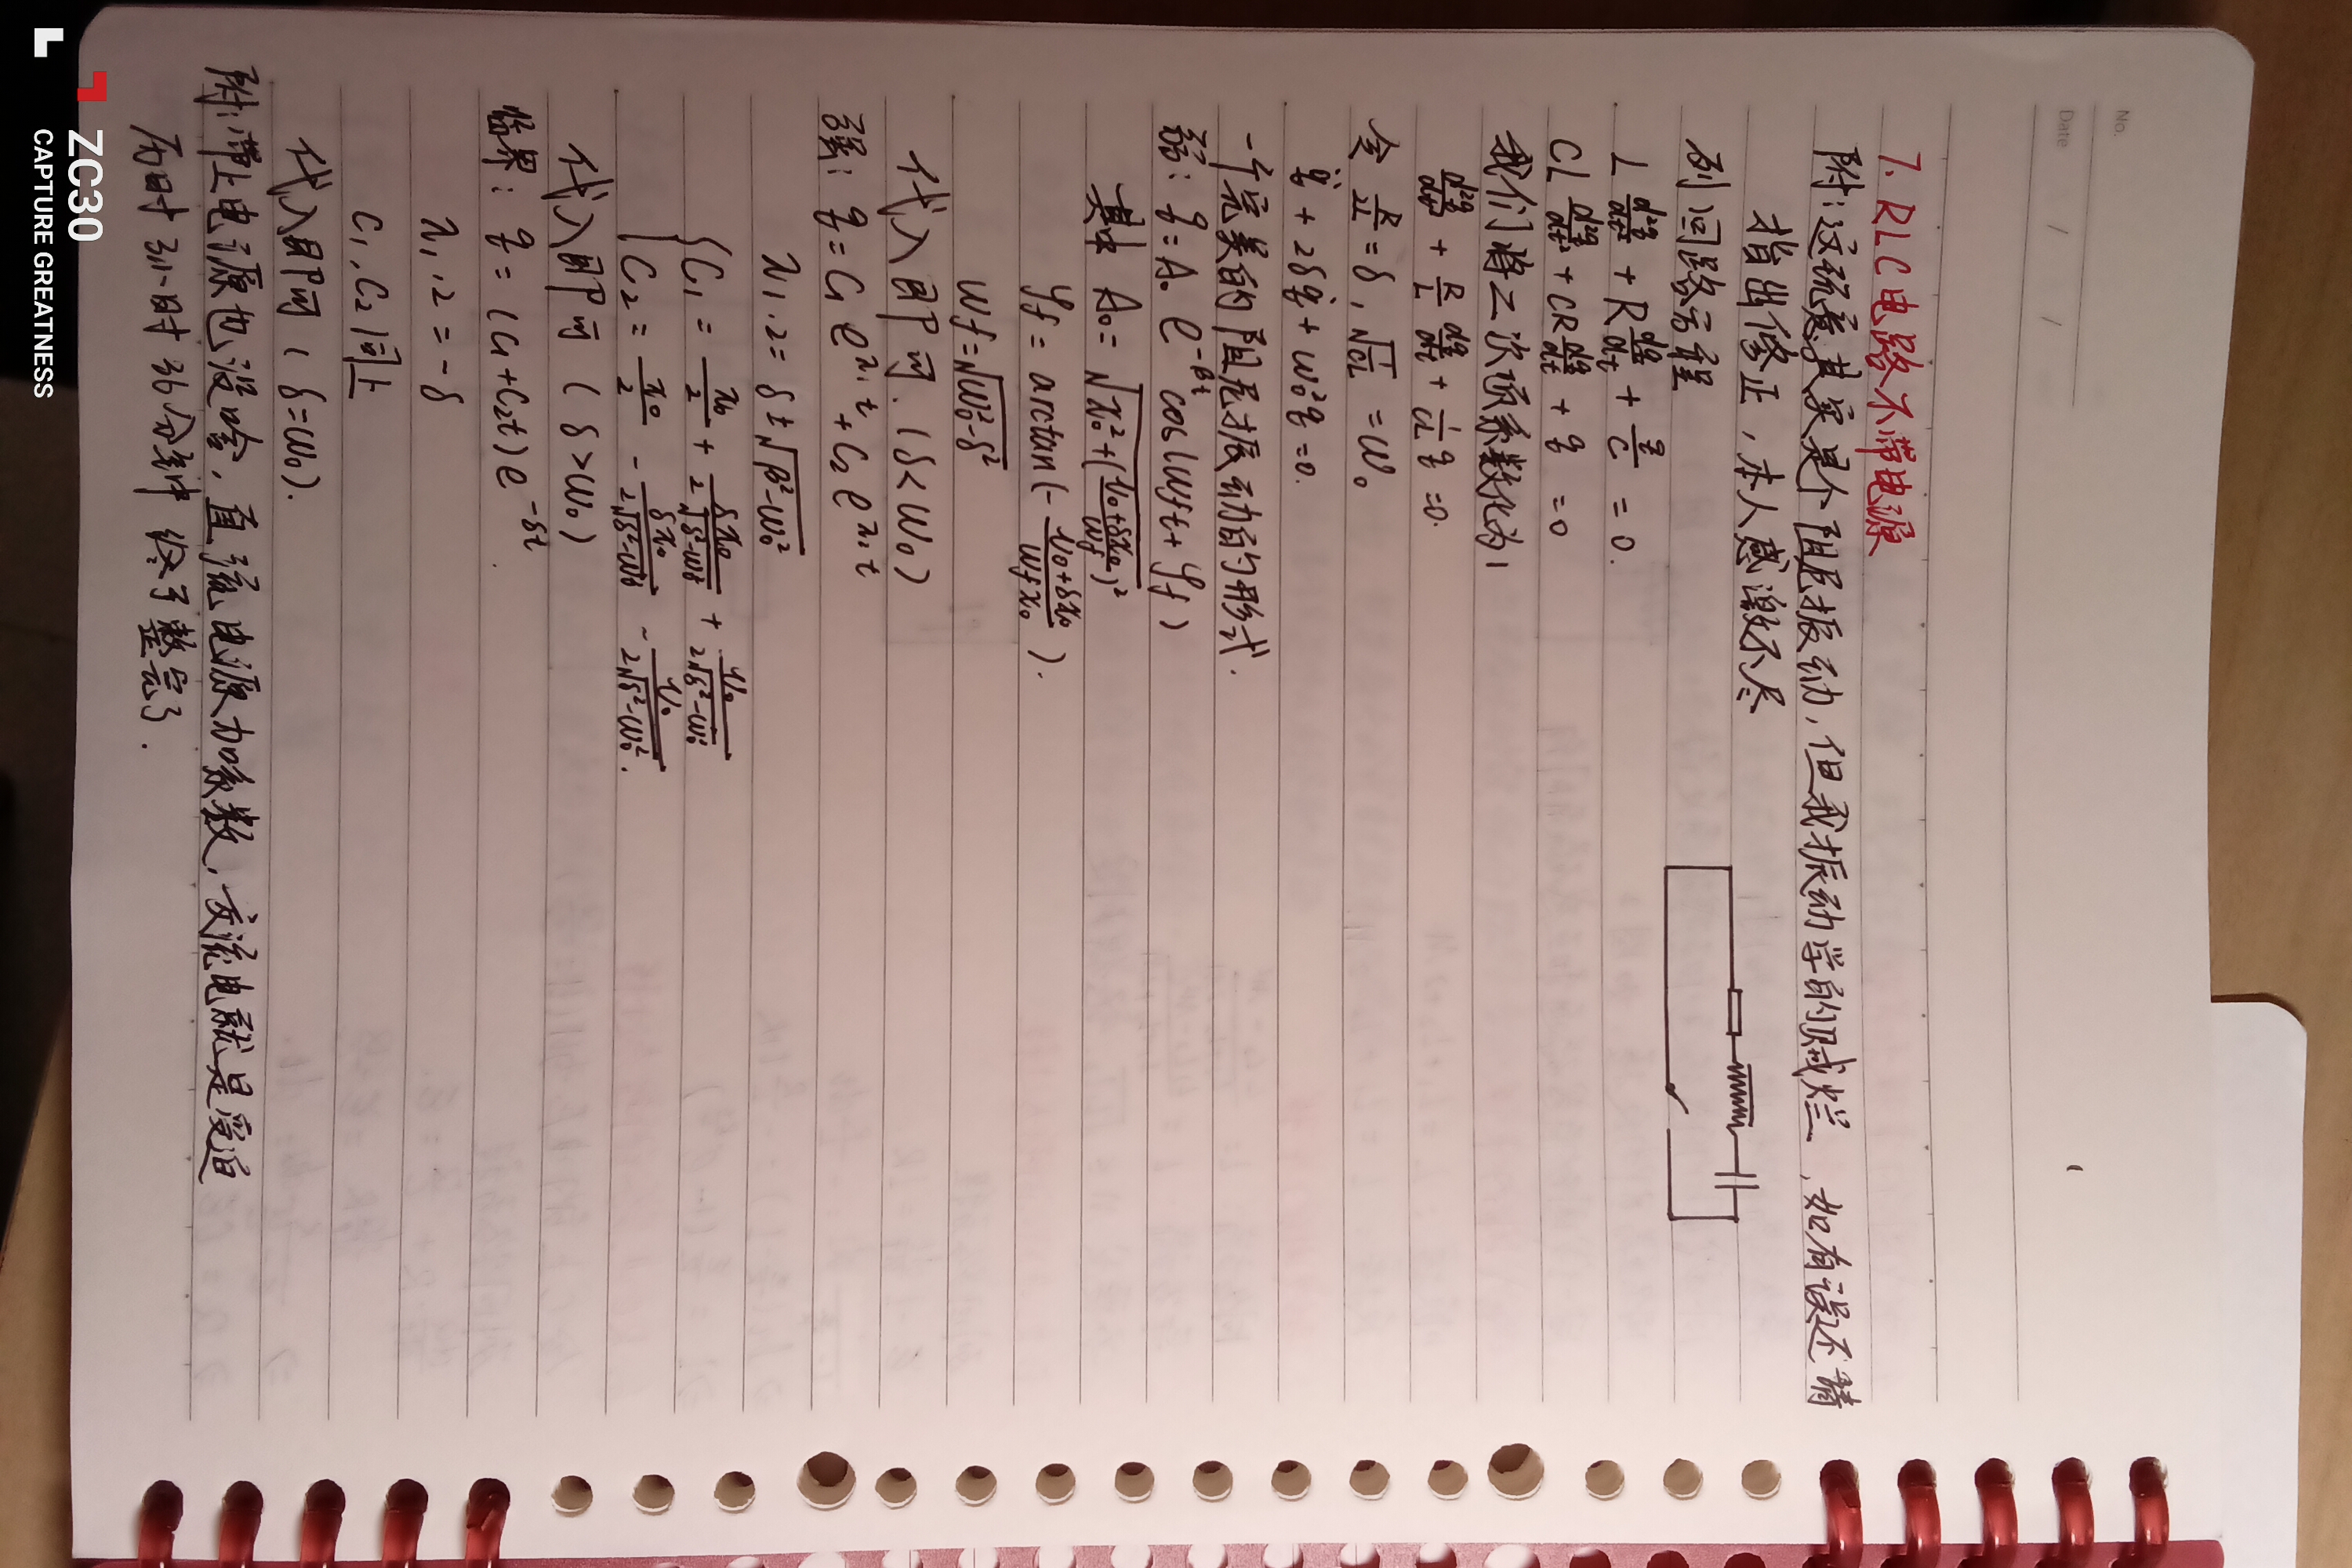 No.
Date / /
7. RLC电路不带电源
附:这玩意其实是个阻尼振动,但我振动学的贼烂,如有误还请
指出修正,本人感激不尽
列回路方程
L d²q/dt² + R dq/dt + q/C = 0.
CL d²q/dt² + CR dq/dt + q = 0
我们将二次项系数化为1
d²q/dt² + R/L dq/dt + 1/CL q = 0.
令 R/2L = δ, 1/√CL = ω₀
q̈ + 2δq̇ + ω₀²q = 0.
一个完美的阻尼振动的形式.
弱: q = A₀ e^-βt cos(ωft + φf)
其中 A₀ = √x₀² + (v₀+δx₀/ωf)²
φf = arctan(- v₀+δx₀/ωfx₀).
ωf = √ω₀²-δ²
代入即可.(δ<ω₀)
强: q = C₁ e^λ₁t + C₂ e^λ₂t
λ₁,₂ = δ ± √β²-ω₀²
C₁ = x₀/2 + δx₀/2√δ²-ω₀² + v₀/2√δ²-ω₀²
C₂ = x₀/2 - δx₀/2√δ²-ω₀² - v₀/2√δ²-ω₀².
代入即可(δ>ω₀)
临界: q = (C₁+C₂t)e^-δt.
λ₁,₂ = -δ
C₁,C₂同上
代入即可(δ=ω₀).
附:带上电源也没啥,直流电源加系数,交流电就是受迫
历时3小时36分钟 终于整完了.
ZC30
CAPTURE GREATNESS